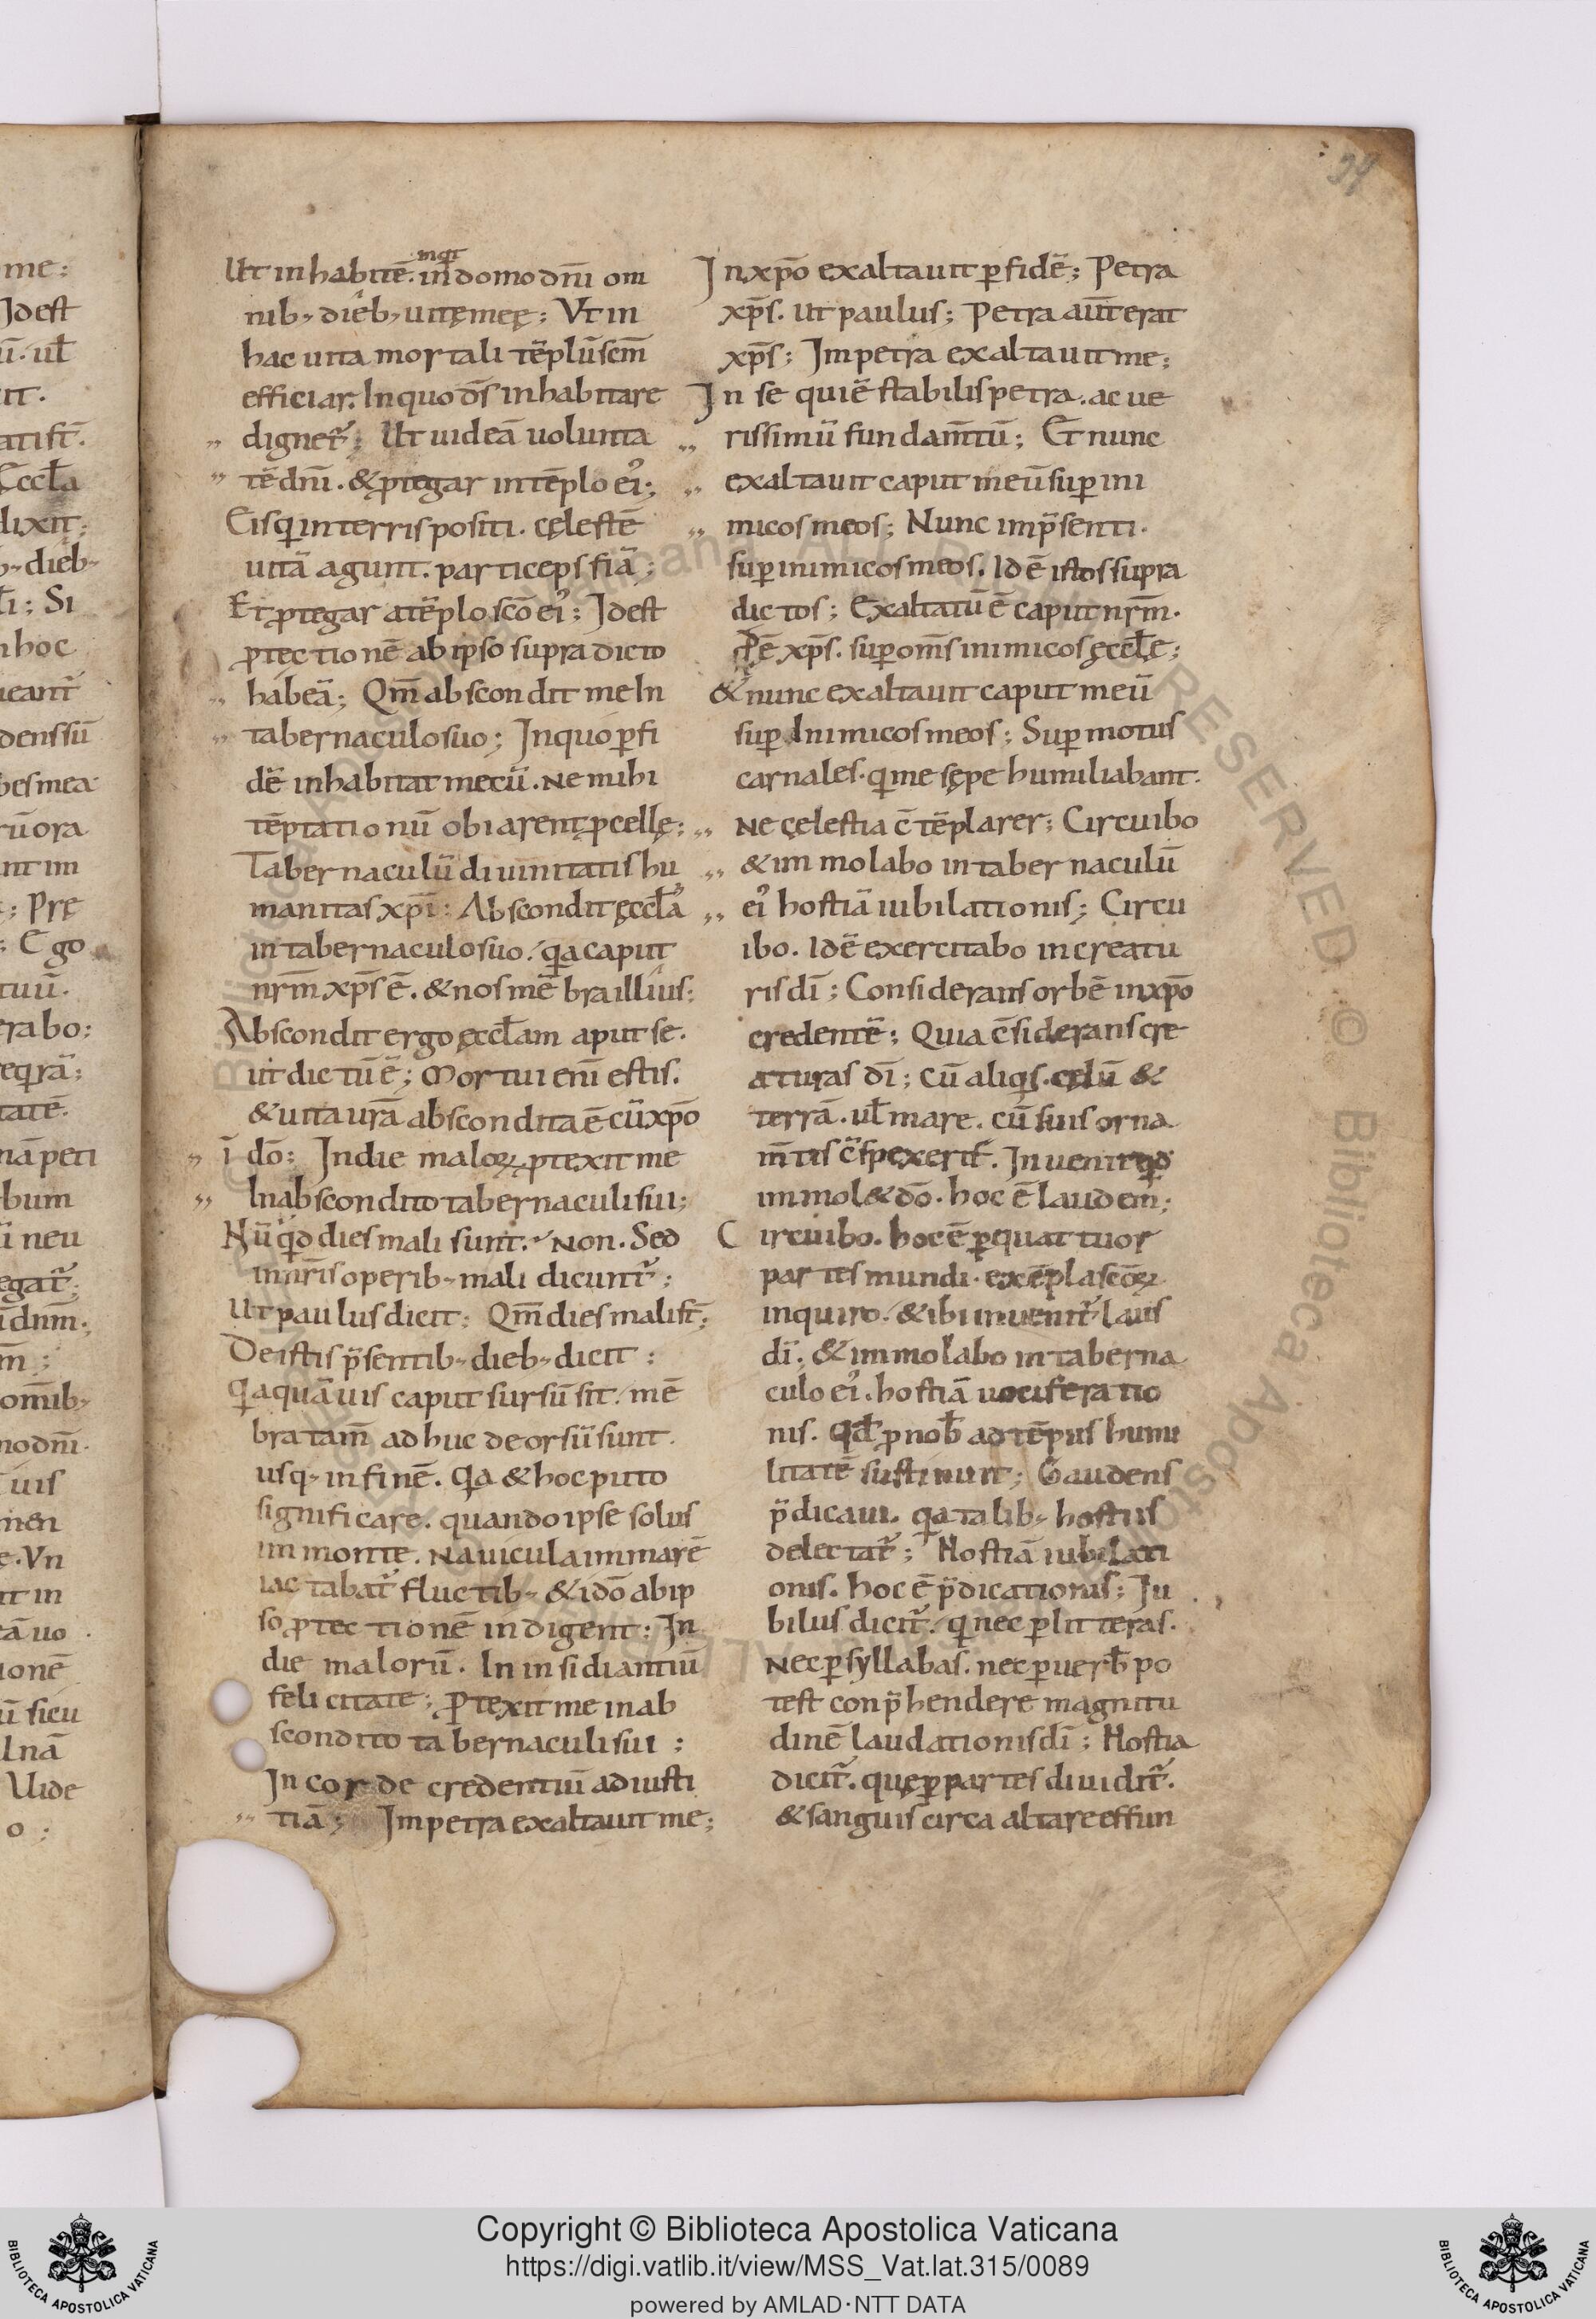 39
inqt
Ut inhabitē. in domo dn̄i om
nib; dieb; uitę meę; Ut in
hac uita mortali tēplū sc̄m
efficiar. In quo d̄s inhabitare
dignet᷑; Ut uideā uolunta
tē dn̄i. & ꝓtegar in tēplo ei᾿;
Eisq̄ in terris positi. cęlestē
uitā agunt. particeps fiā;
Et ꝓtegar a tēplo sc̄o ei᾿; Id est
ꝓtectionē ab ipso supradicto
habeā; Qm̄ abscondit me In
tabernaculo suo; In quo ꝑ fi
dē inhabitat mecū. Ne mihi
tēptationū obiarent ꝓcellę;
Tabernaculū diuinitatis hu
manitas xp̄i; Abscondit ęccl̄a
in tabernaculo suo. q̄a caput
nr̄m xp̄s ē. & nos mēbra illius;
Abscondit ergo ęccl̄am aput se.
ut dictū ē; Mortui eni estis.
& uita ur̄a abscondita ē cū xp̄o
ī dō; In die maloꝝ ꝓtexit me
In abscondito tabernaculi sui;
Nūq̄d dies mali sunt. Non. Sed
in nr̄is operib; mali dicunt᷑;
Ut paulus dicit; Qm̄ dies mali st̄;
De istis p̄sentib; dieb; dicit;
Q̄a quāuis caput sursū sit. mē
bra tam̄ adhuc deorsū sunt.
usq; in finē. Q̄a & hoc puto
significare. quando ipse solus
im monte. Nauicula im mare
iactabat᷑ fluctib; & idō ab ip
so ꝓtectionē indigent; In
die malorū. In insidiantiū
felicitate; Ꝓtexit me in ab
scondito tabernaculi sui;
In corde credentiū ad iusti
tiā; Im petra exaltauit me;
In xp̄o exaltauit ꝑ fidē; Petra
xp̄s. ut paulus; Petra aut̄ erat
xp̄s; Im petra exaltauit me;
In se qui ē stabilis petra. ac ue
rissimū fundam̄tū; Et nunc
exaltauit caput meū suꝑ ini
micos meos; Nunc im p̄senti.
suꝑ inimicos meos. Id ē istos supra
dictos; Exaltatū ē caput nr̄m.
xp̄s. suꝑ om̄s inimicos ęccl̄ę;
& nunc exaltauit caput meū
suꝑ Inimicos meos; Suꝑ motus
carnales. q̄ me sępe humiliabant.
Ne cęlestia c̄tēplarer; Circuibo
& immolabo in tabernaculū
ei᾿ hostiā iubilationis; Circu
ibo. Id ē exercitabo in creatu
ris dī; Considerans orbē in xp̄o
credentē; Quia c̄siderans cre
aturas dī; cū aliq̄s. cęlū &
terrā. ul̄ mare. cū suis orna
m̄tis c̄spexerit. Inuenit q̄d
immol& dō. hoc ē laudem;
Circuibo. hoc ē ꝑ quattuor
partes mundi. exēpla sc̄oꝝ
inquiro. & ibi inuenit᷑ laus
dī; & immolabo in taberna
culo ei᾿. hostiā uociferatio
nis. Qd̄ ꝓ nob̄ ad tēpus humi
litatē sustinuit; Gaudens
p̄dicaui. q̄a talib; hostiis
delectat᷑; Hostiā iubilati
onis. hoc ē p̄dicationis; Iu
bilus dicit᷑. q̄ nec ꝑ litteras.
Nec ꝑ syllabas. nec ꝑ uerb̄ po
test conp̄hendere magnitu
dinē laudationis dī; Hostia
dicit᷑. quę ꝑ partes diuidit᷑.
& sanguis circa altare effun
Copyright © Biblioteca Apostolica Vaticana
https://digi.vatlib.it/view/MSS_Vat.lat.315/0089
powered by AMLAD·NTT DATA
BIBLIOTECA APOSTOLICA VATICANA
BIBLIOTECA APOSTOLICA VATICANA